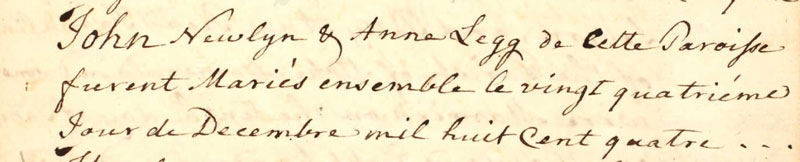 John Newlyn & Anne Legg de Cette Paroisse
furent Mariés ensemble le vingt quatriéme
Jour de Decembre mil huit Cent quatre . . .